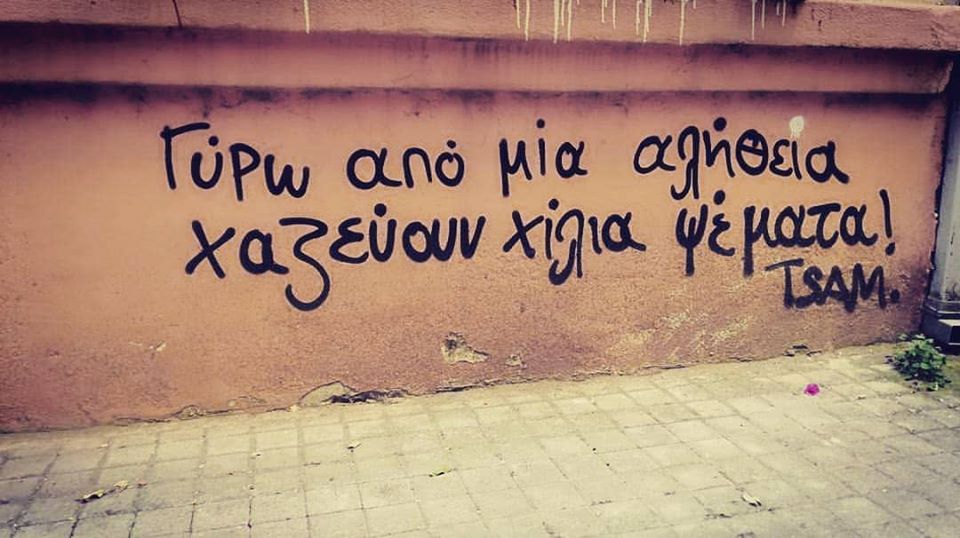 Γύρω από μία αλήθεια
χαζεύουν χίλια ψέματα!
TSAM.